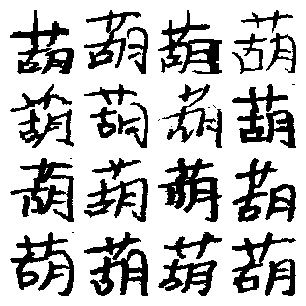 葫葫葫葫
葫葫葫葫
葫葫葫葫
葫葫葫葫